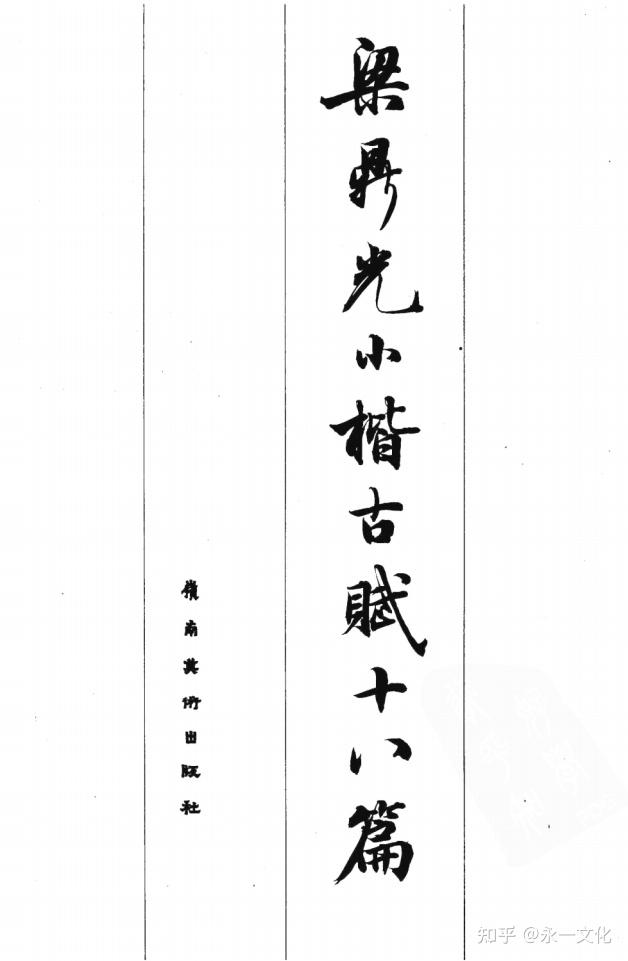 梁鼎光小楷古賦十八篇
嶺南美術出版社
知乎 @永一文化